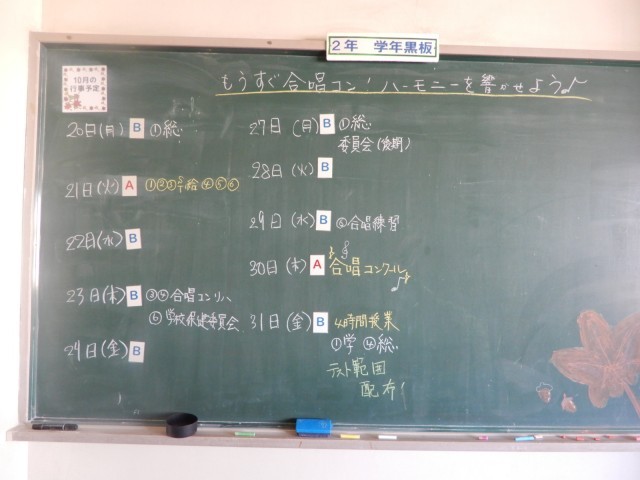 2年 学年黒板
10月の
行事予定
もうすぐ合唱コン！ハーモニーを響かせよう♪
20日(月) B ①総
21日(火) A ①②③給④⑤⑥
22日(水) B
23日(木) B ③④合唱コンリハ
⑥学校保健委員会
24日(金) B
27日(月) B ①総
委員会(後期)
28日(火) B
29日(水) B ⑤合唱練習
30日(木) A 合唱コンクール
31日(金) B 4時間授業
①学 ④総
テスト範囲
配布！